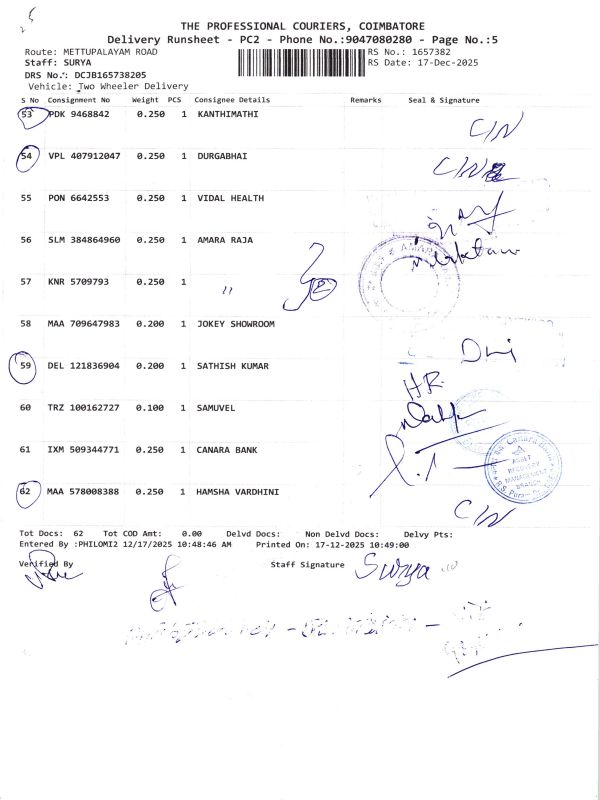 THE PROFESSIONAL COURIERS, COIMBATORE
Delivery Runsheet - PC2 - Phone No.:9047080280 - Page No.:5
Route: METTUPALAYAM ROAD RS No.: 1657382
Staff: SURYA RS Date: 17-Dec-2025
DRS No.: DCJB165738205
Vehicle: Two Wheeler Delivery
S No Consignment No Weight PCS Consignee Details Remarks Seal & Signature
53 PDK 9468842 0.250 1 KANTHIMATHI C/N
54 VPL 407912047 0.250 1 DURGABHAI C/N
55 PON 6642553 0.250 1 VIDAL HEALTH
56 SLM 384864960 0.250 1 AMARA RAJA
57 KNR 5709793 0.250 1 " 2
58 MAA 709647983 0.200 1 JOKEY SHOWROOM
59 DEL 121836904 0.200 1 SATHISH KUMAR HR
60 TRZ 100162727 0.100 1 SAMUVEL
61 IXM 509344771 0.250 1 CANARA BANK
ASSET RECOVERY MANAGEMENT BRANCH
62 MAA 578008388 0.250 1 HAMSHA VARDHINI C/N
Tot Docs: 62 Tot COD Amt: 0.00 Delvd Docs: Non Delvd Docs: Delvy Pts:
Entered By :PHILOMI2 12/17/2025 10:48:46 AM Printed On: 17-12-2025 10:49:00
Verified By Staff Signature Surya